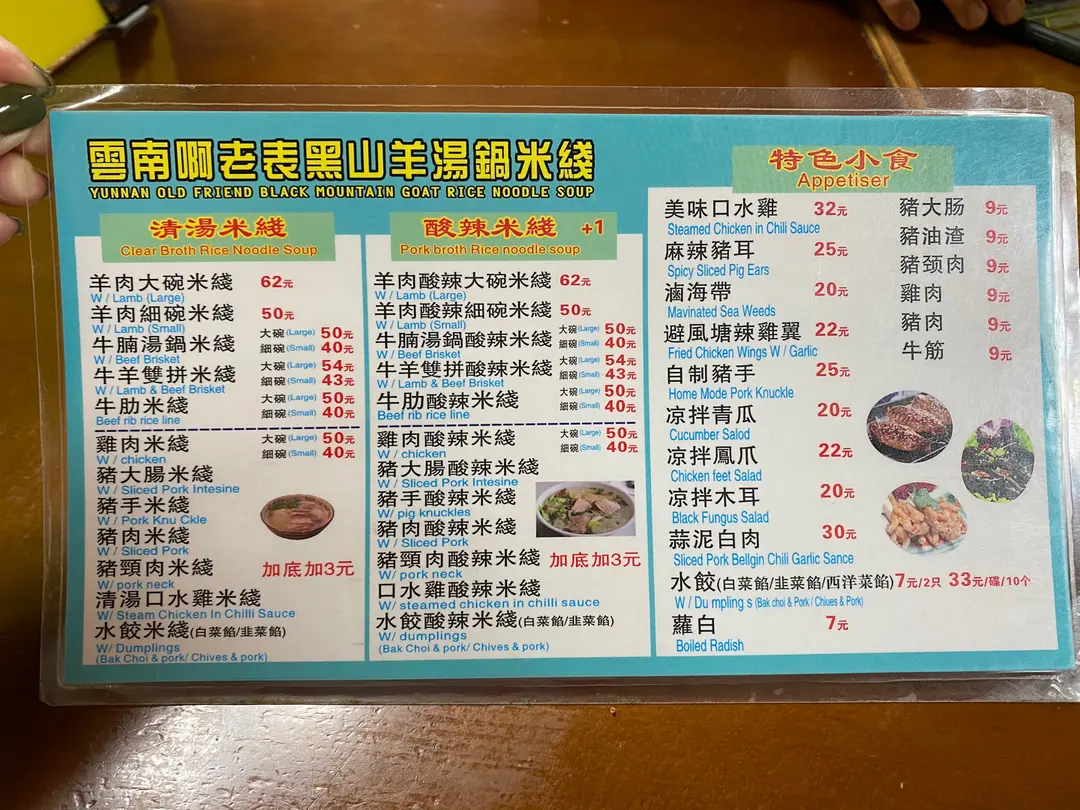 雲南啊老表黑山羊湯鍋米綫
YUNNAN OLD FRIEND BLACK MOUNTAIN GOAT RICE NOODLE SOUP
清湯米綫
Clear Broth Rice Noodle Soup
羊肉大碗米綫 62元
W / Lamb (Large)
羊肉細碗米綫 50元
W / Lamb (Small)
牛腩湯鍋米綫 大碗(Large) 50元
W / Beef Brisket 細碗(Small) 40元
牛羊雙拼米綫 大碗(Large) 54元
W / Lamb & Beef Brisket 細碗(Small) 43元
牛肋米綫 大碗(Large) 50元
Beef rib rice line 細碗(Small) 40元
雞肉米綫 大碗(Large) 50元
W / chicken 細碗(Small) 40元
豬大腸米綫
W / Sliced Pork Intesine
豬手米綫
W / Pork Knu Ckle
豬肉米綫
W / Sliced Pork
豬頸肉米綫 加底加3元
W/ pork neck
清湯口水雞米綫
W/ Steam Chicken In Chilli Sauce
水餃米綫(白菜餡/韭菜餡)
W/ Dumplings
(Bak Choi & pork/ Chives & pork)
酸辣米綫 +1
Pork broth Rice noodle soup
羊肉酸辣大碗米綫 62元
W / Lamb (Large)
羊肉酸辣細碗米綫 50元
W / Lamb (Small)
牛腩湯鍋酸辣米綫 大碗(Large) 50元
W / Beef Brisket 細碗(Small) 40元
牛羊雙拼酸辣米綫 大碗(Large) 54元
W / Lamb & Beef Brisket 細碗(Small) 43元
牛肋酸辣米綫 大碗(Large) 50元
Beef rib rice line 細碗(Small) 40元
雞肉酸辣米綫 大碗(Large) 50元
W / chicken 細碗(Small) 40元
豬大腸酸辣米綫
W / Sliced Pork Intesine
豬手酸辣米綫
W/ pig knuckles
豬肉酸辣米綫
W / Sliced Pork
豬頸肉酸辣米綫 加底加3元
W/ pork neck
口水雞酸辣米綫
W/ steamed chicken in chilli sauce
水餃酸辣米綫(白菜餡/韭菜餡)
W/ dumplings
(Bak Choi & pork/ Chives & pork)
特色小食
Appetiser
美味口水雞 32元
Steamed Chicken in Chili Sauce
麻辣豬耳 25元
Spicy Sliced Pig Ears
滷海帶 20元
Mavinated Sea Weeds
避風塘辣雞翼 22元
Fried Chicken Wings W / Garlic
自制豬手 25元
Home Mode Pork Knuckle
凉拌青瓜 20元
Cucumber Salod
凉拌鳳爪 22元
Chicken feet Salad
凉拌木耳 20元
Black Fungus Salad
蒜泥白肉 30元
Sliced Pork Bellgin Chili Garlic Sance
水餃(白菜餡/韭菜餡/西洋菜餡)7元/2只 33元/碟/10个
W / Du mpling s (Bak choi & Pork / Chiues & Pork)
蘿白 7元
Boiled Radish
豬大肠 9元
豬油渣 9元
豬颈肉 9元
雞肉 9元
豬肉 9元
牛筋 9元